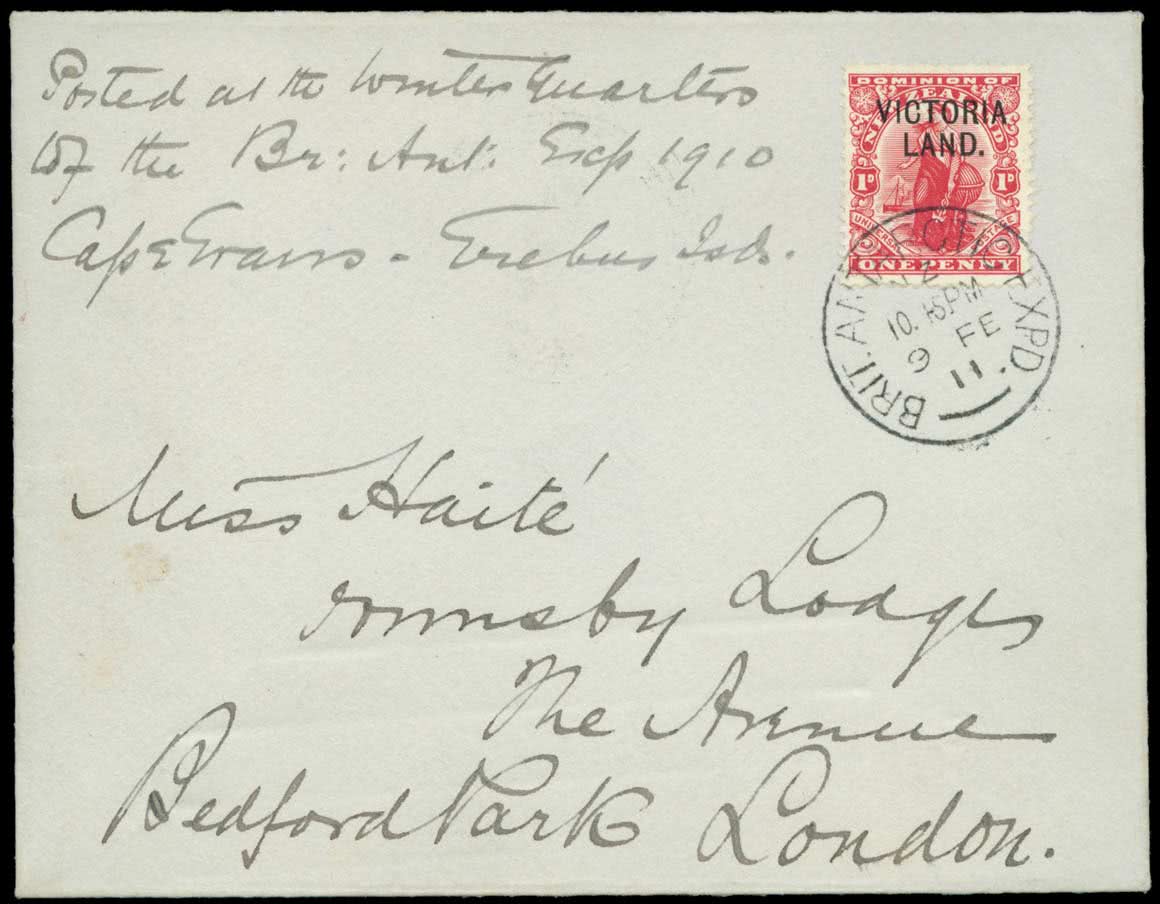 Posted at the Winter Quarters
of the Br: Ant: Exp 1910
Cape Evans - Erebus Isd.
DOMINION OF
NEW ZEALAND
VICTORIA
LAND.
1D 1D
UNIVERSAL POSTAGE
ONE PENNY
BRIT. ANTARCTIC EXPD.
10.15PM
9 FE
11.
Miss Haité
Ormsby Lodge
The Avenue
Bedford Park London.